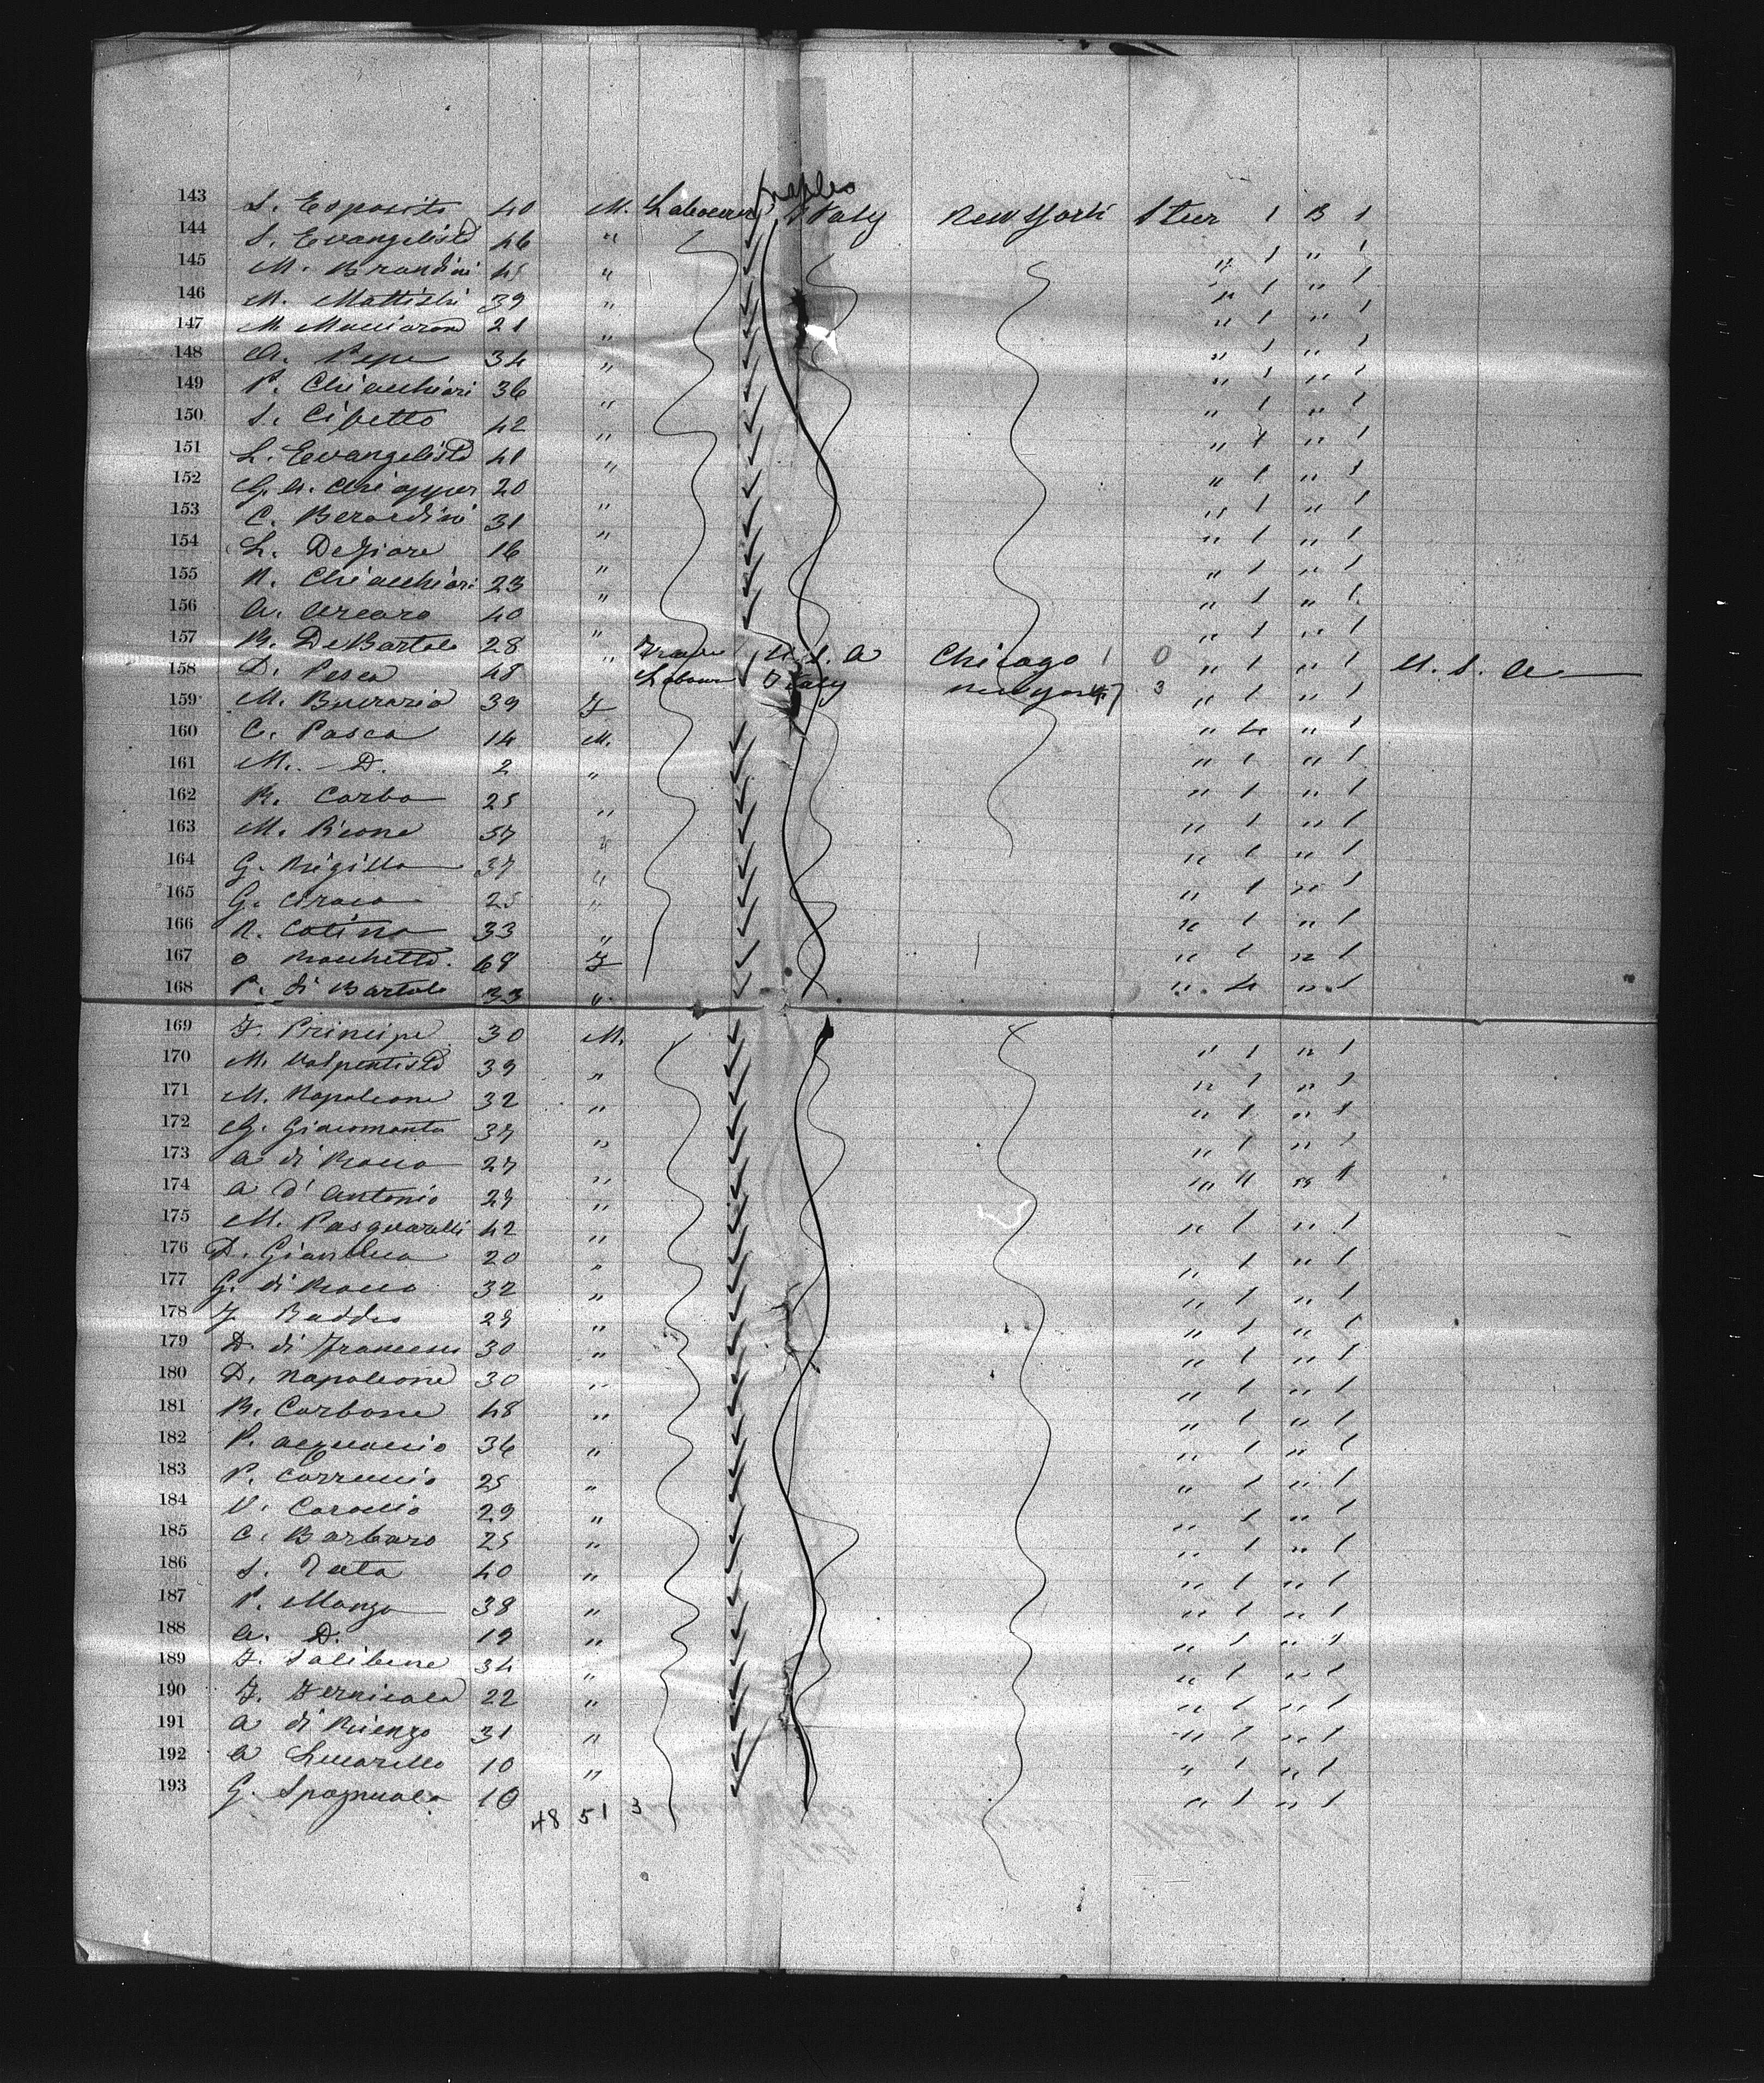 Naples
143 S. Esposito 40 M. Labourer Italy New York Steer 1 B 1
144 S. Evangelista 46 " " 1 " 1
145 M. Brandini 45 " " 1 " 1
146 M. 39 " " 1 " 1
147 M. 21 " " 1 " 1
148 A. Pepe 34 " " 1 " 1
149 P. Chiacchiari 36 " " 1 " 1
150 S. 42 " " 1 " 1
151 L. Evangelista 41 " " 1 " 1
152 20 " " 1 " 1
153 C. Berardini 31 " " 1 " 1
154 L. 16 " " 1 " 1
155 N. Chiacchiari 23 " " 1 " 1
156 A. Arcaro 40 " " 1 " 1
157 R. DeBartolo 28 " U.S.A Chicago 1 0 " 1 " 1 U. S. A
158 D. Pasca 48 Labourer Italy New York 7 3 " 1 " 1
159 M. 39 F " 4 " 1
160 C. Pasca 14 M. " 1 " 1
161 M. D. 2 " " 1 " 1
162 R. Carbo 25 " " 1 " 1
163 M. 57 " " 1 " 1
164 G. 37 " " 1 " 1
165 G. 25 " " 1 " 1
166 N. Catina 33 " " 1 " 1
167 68 F " 4 " 1
168 P. di Bartolo 33 "
169 F. Principe 30 M. " 1 " 1
170 M. Valpentista 39 " " 1 " 1
171 M. Napoleone 32 " " 1 " 1
172 G. 37 " " 1 " 1
173 A di Rocco 27 " " 11 " 1
174 A d'Antonio 29 " " 1 " 1
175 M. Pasquarelli 42 " " 1 " 1
176 D. Gianluca 20 " " 1 " 1
177 G. di Rocco 32 " " 1 " 1
178 F Baddeo 29 " " 1 " 1
179 D. di Francesco 30 " " 1 " 1
180 D. Napoleone 30 " " 1 " 1
181 R. Carbone 48 " " 1 " 1
182 P. 36 " " 1 " 1
183 P. 25 " " 1 " 1
184 V. 29 " " 1 " 1
185 C. Barbaro 25 " " 1 " 1
186 S. Tata 40 " " 1 " 1
187 P. Manzo 38 " " 1 " 1
188 A. D. 19 " " 1 " 1
189 F. Salibene 34 " " 1 " 1
190 F. Fernicola 22 " " 1 " 1
191 A di Rienzo 31 " " 1 " 1
192 A Lucarello 10 " " 1 " 1
193 G. Spagnuolo 10 " 1 " 1
48 51 3